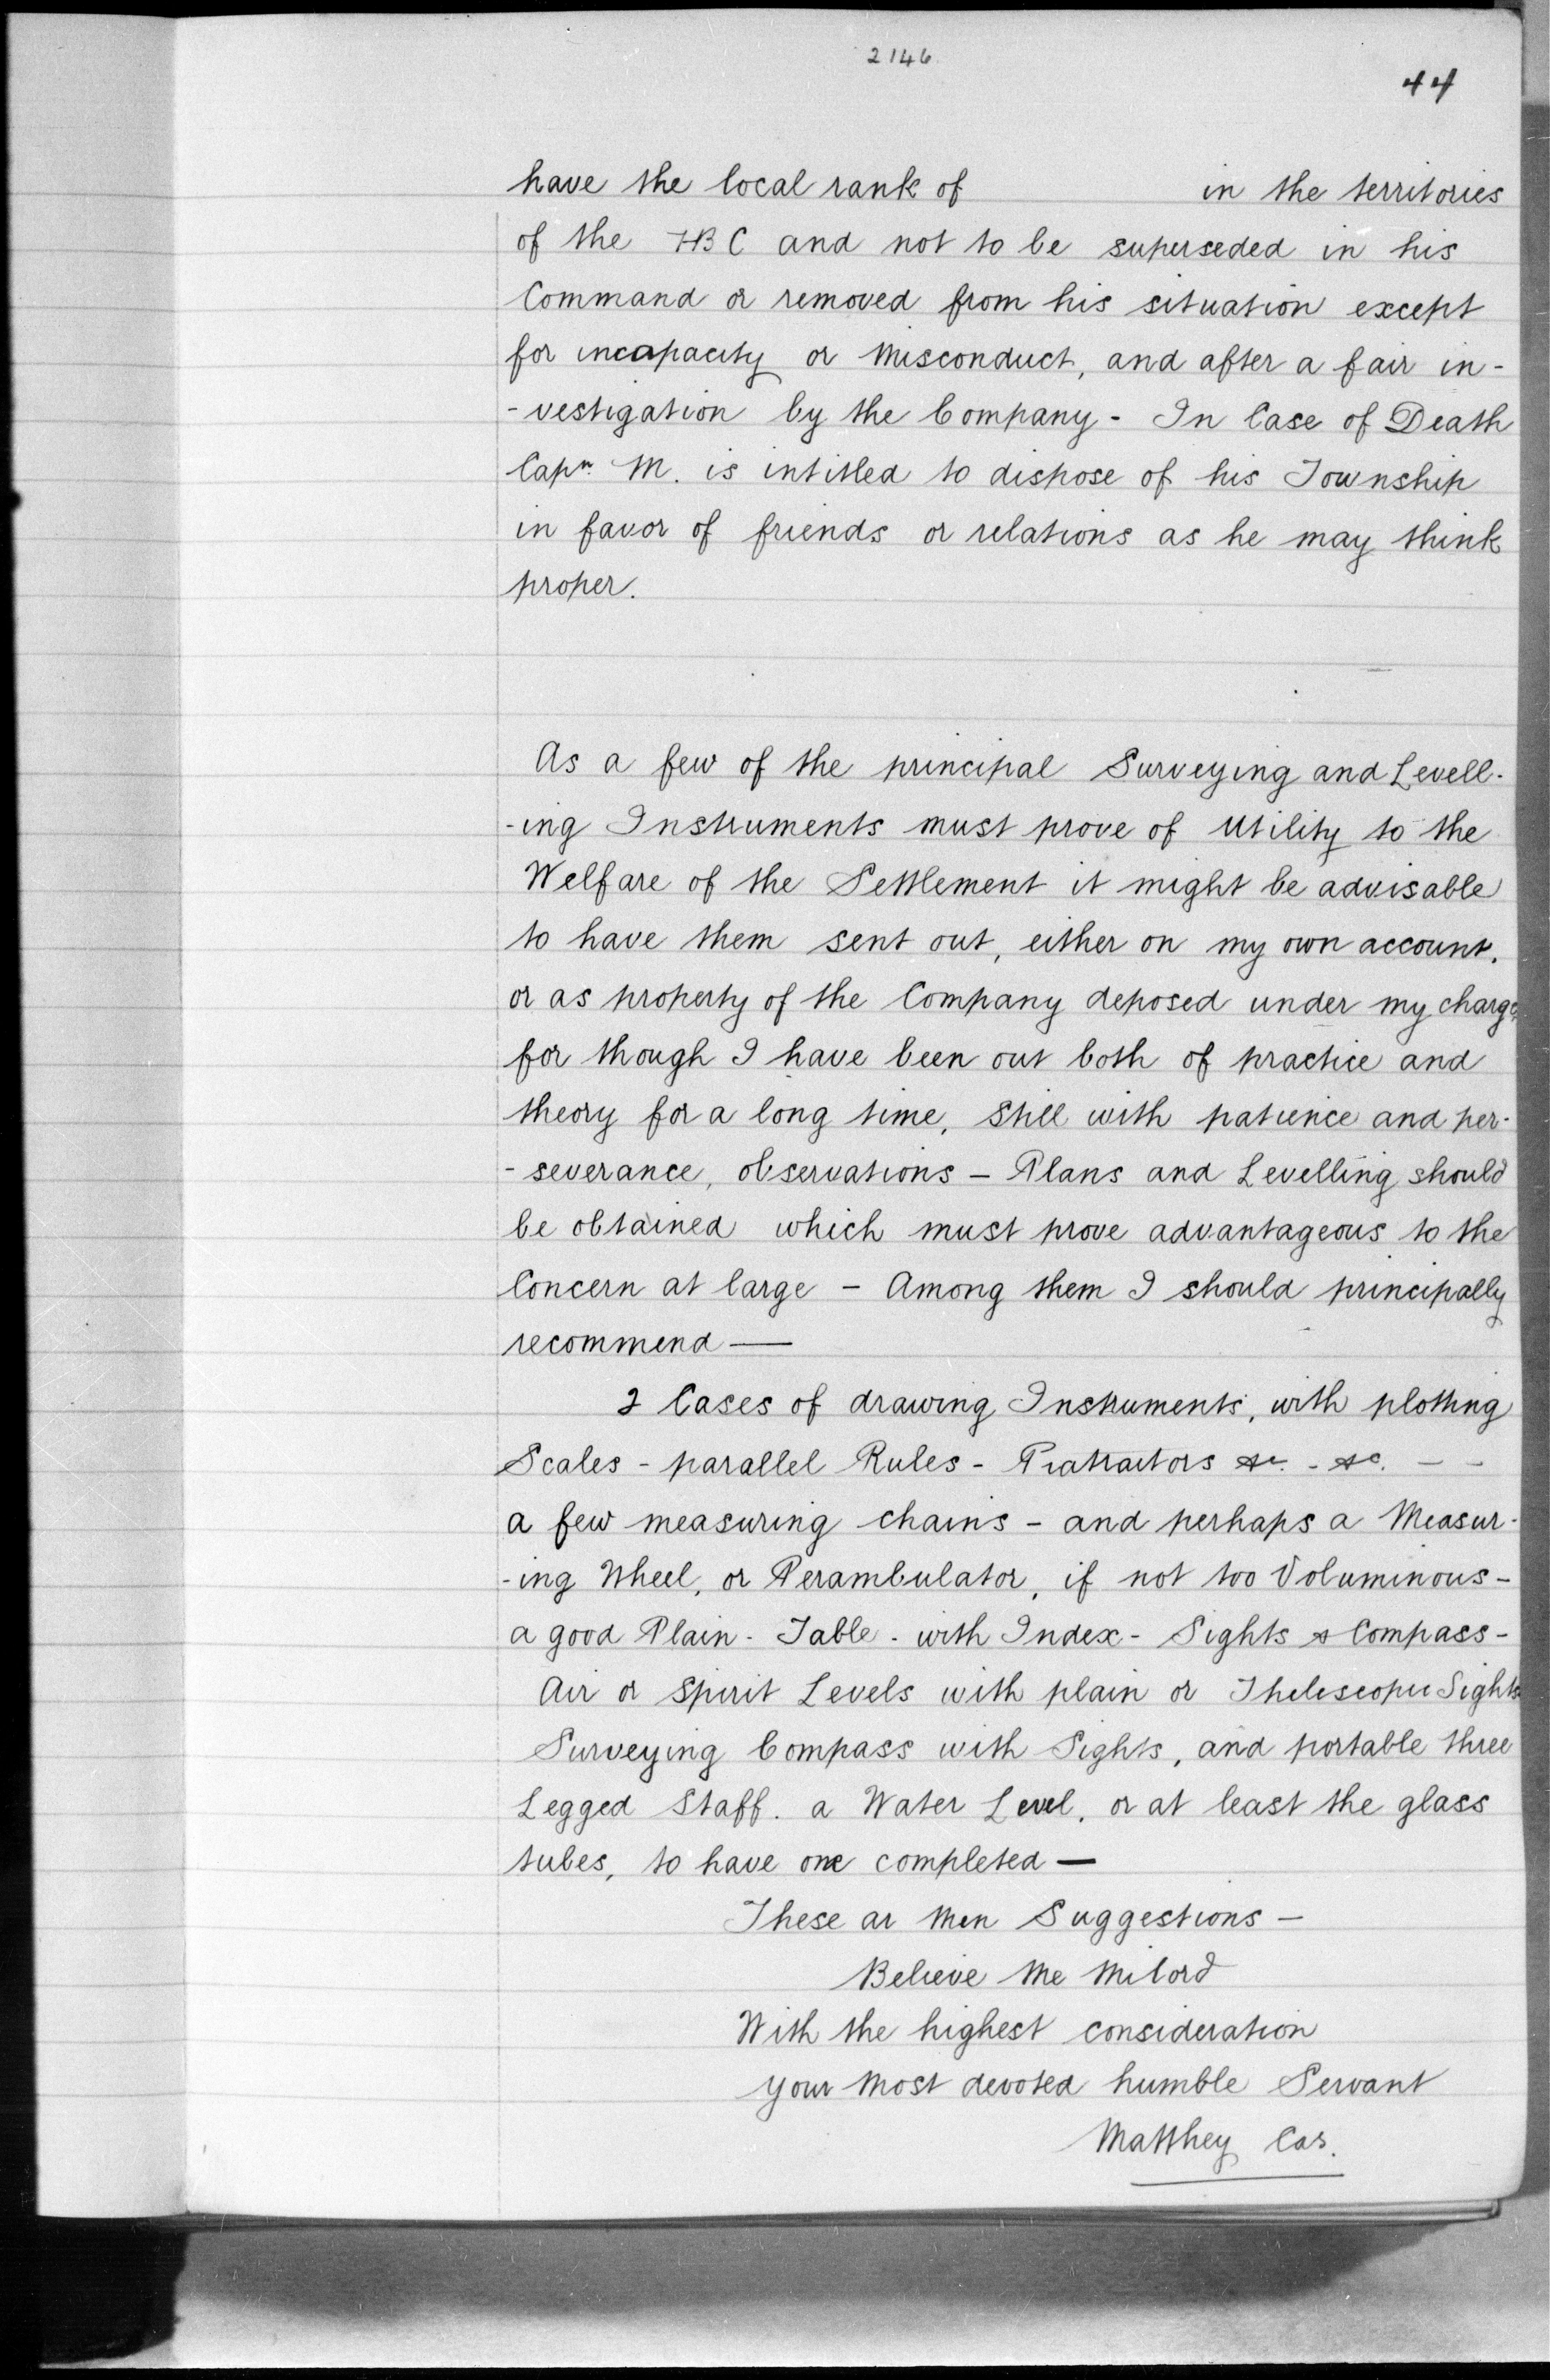 2146
44
have the local rank of in the territories
of the HBC and not to be superseded in his
Command or removed from his situation except
for incapacity or misconduct, and after a fair in-
-vestigation by the Company - In Case of Death
Capn. M. is intitled to dispose of his Township
in favor of friends or relations as he may think
proper.
As a few of the principal Surveying and Levell-
-ing Instruments must prove of utility to the
Welfare of the Settlement it might be advisable
to have them sent out, either on my own account,
or as property of the Company deposed under my charge,
for though I have been out both of practice and
theory for a long time, still with patience and per-
-severance, observations - Plans and Levelling should
be obtained which must prove advantageous to the
Concern at large - Among them I should principally
recommend —
2 Cases of drawing Instruments, with plotting
Scales - parallel Rules - Protractors &c. - &c. - -
a few measuring chains - and perhaps a Measur-
-ing Wheel, or Perambulator, if not too Voluminous -
a good Plain - Table - with Index - Sights & Compass -
Air or Spirit Levels with plain or Theliscopic Sights
Surveying Compass with Sights, and portable three
Legged Staff. a Water Level, or at least the glass
tubes, to have one completed —
These ar men Suggestions -
Believe me Milord
With the highest consideration
your most devoted humble Servant
Matthey Cas.